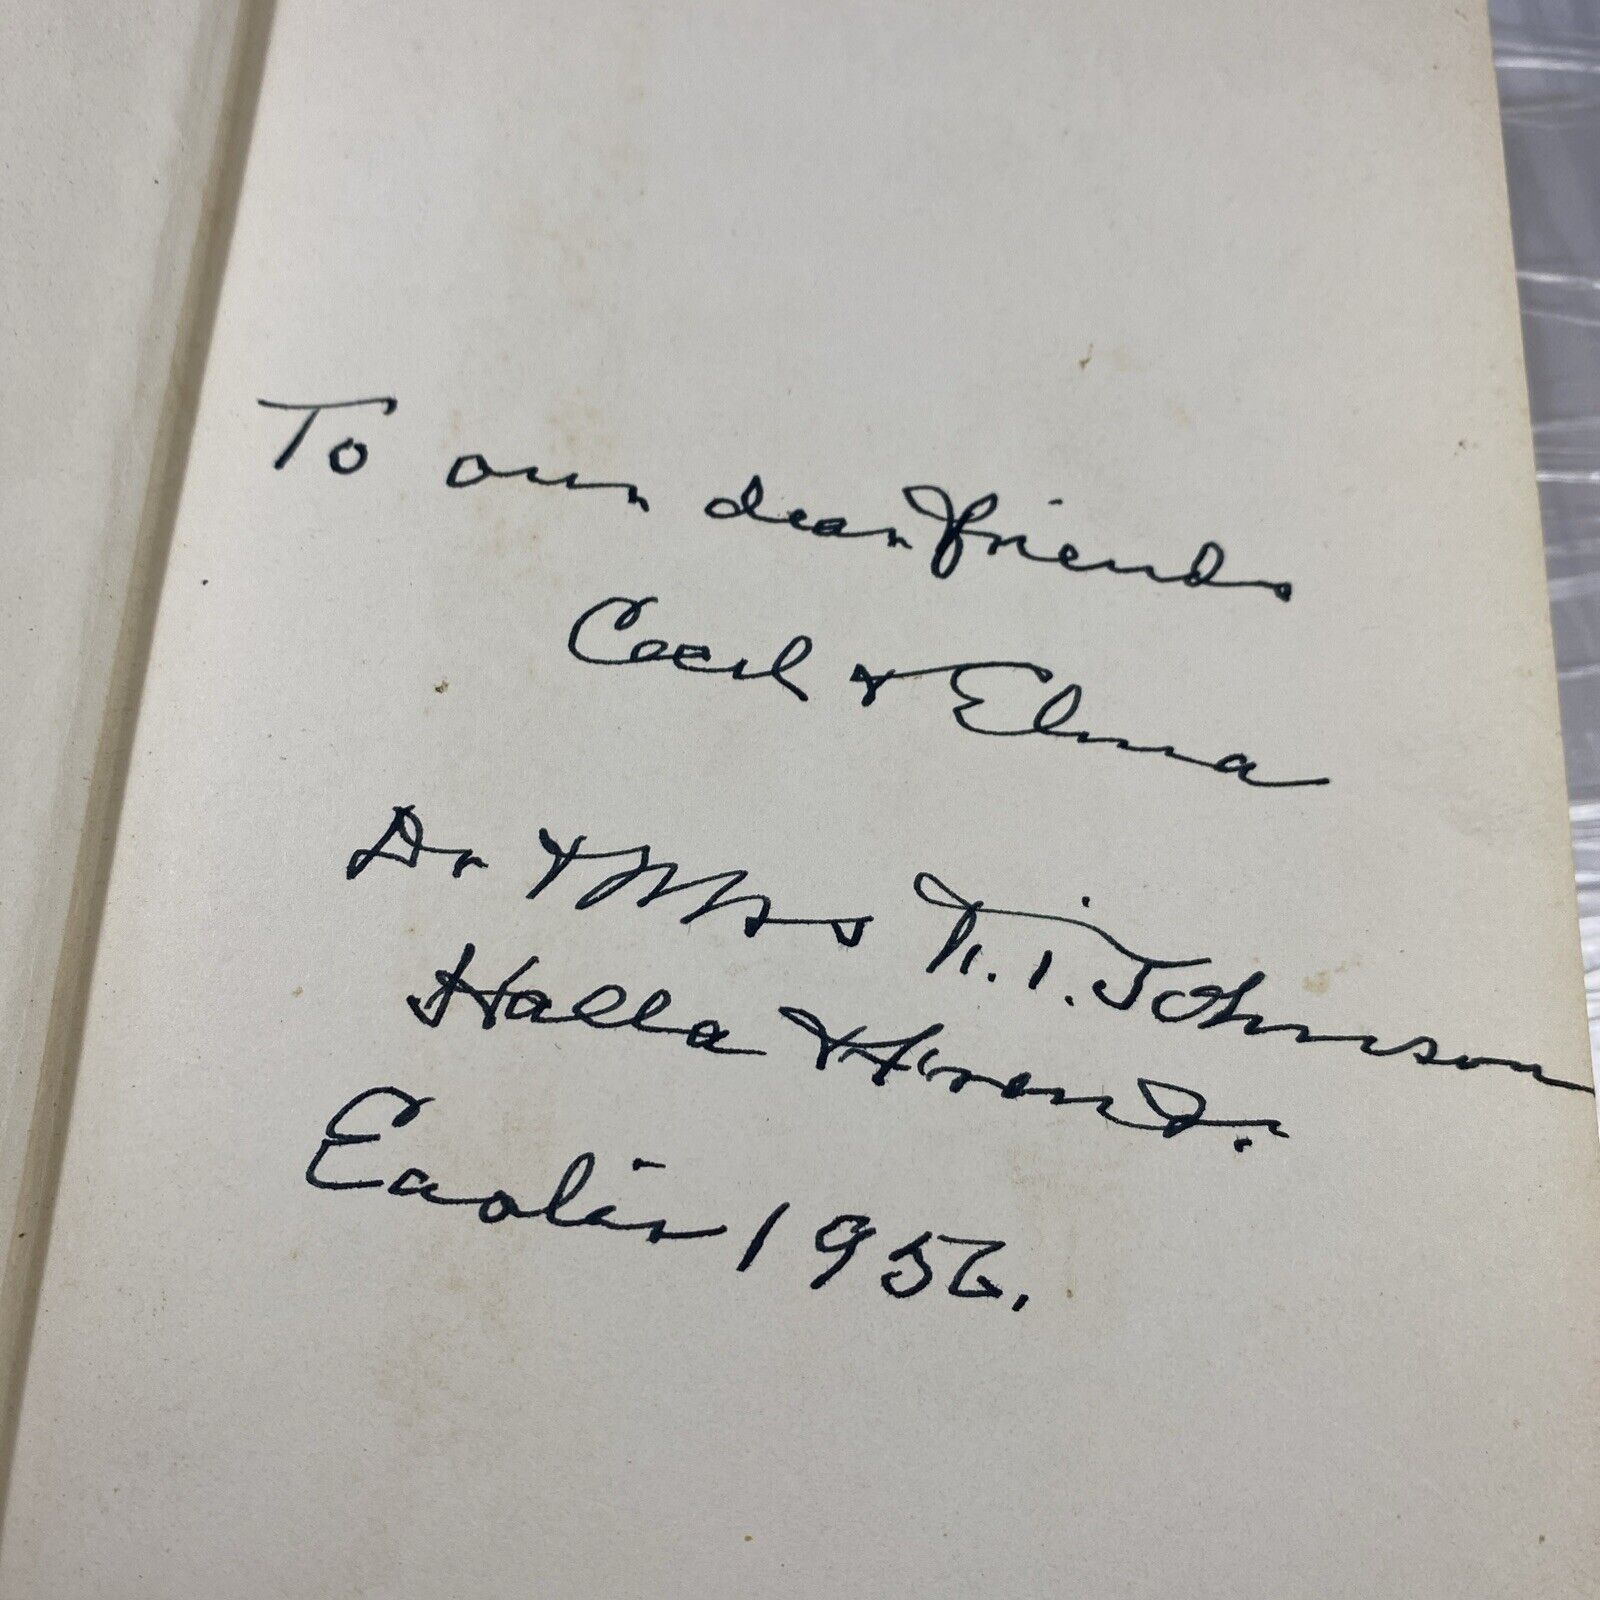 To our dear friends
Cecil & Elma
Dr & Mrs N. I. Johnson
Halla &
Easter 1956.